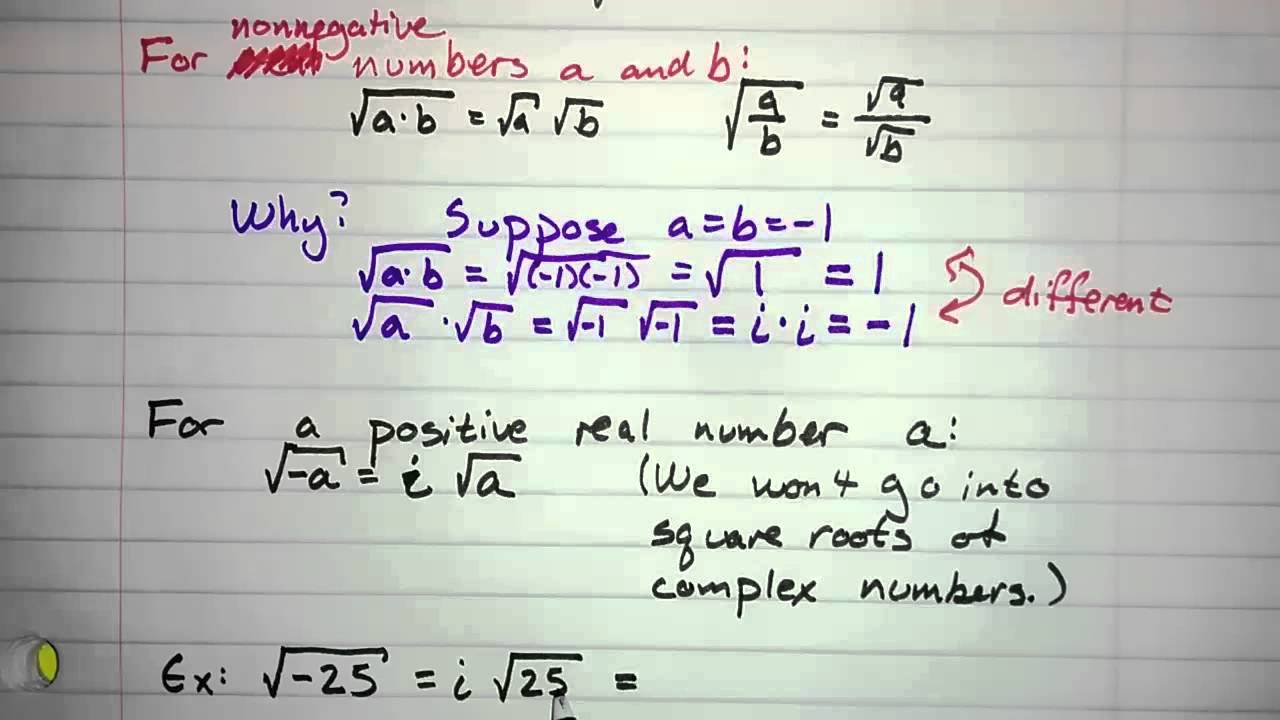 nonnegative
For numbers a and b:
√(a·b) = √a √b    √(a/b) = √a/√b
Why? Suppose a = b = -1
√(a·b) = √((-1)(-1)) = √1 = 1
different
√a · √b = √-1 √-1 = i · i = -1
For a positive real number a:
√-a = i √a (We won't go into
square roots of
complex numbers.)
Ex: √-25 = i √25 =